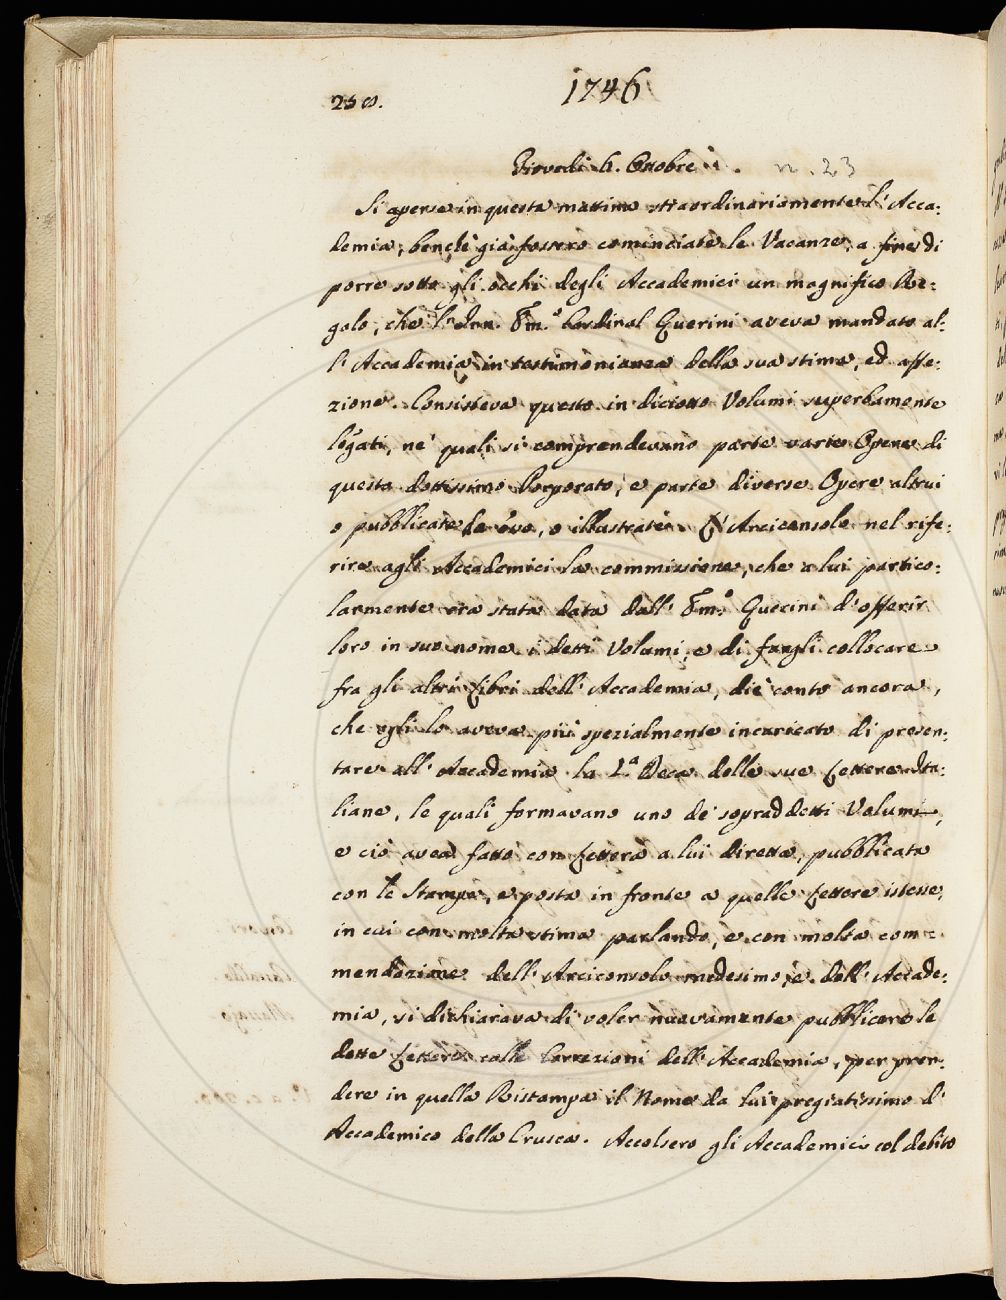 250.
1746
Giovedì 6. Ottobre n. 23
Si aperse in questa mattina straordinariamente l'Acca:
demia, benchè già fossero cominciate le Vacanze, a fine di
porre sotto gli occhi degli Accademici un magnifico Re:
galo, che l' Em.º Cardinal Querini aveva mandato al:
l'Accademia in testimonianza della sua stima, ed affe:
zione. Consisteva questo in diciotto Volumi superbamente
legati, ne' quali si comprendevano parte varie Opere di
questo dottissimo Porporato, e parte diverse Opere altrui
o pubblicate da esso, o illustrate. L'Arciconsolo nel rife:
rire agli Accademici la commissione, che a lui partico:
larmente era stata data dall' Em.º Querini d'offerir
loro in suo nome i detti Volumi, e di fargli collocare
fra gli altri Libri dell'Accademia, diè conto ancora,
che egli lo aveva più spezialmente incaricato di presen:
tare all'Accademia la I.ª Deca delle sue Lettere Ita:
liane, le quali formavano uno de' sopraddetti Volumi,
e ciò avea fatto con Lettera a lui diretta, pubblicata
con le Stampe, e posta in fronte a quelle Lettere istesse,
in cui con molta stima parlando, e con molta com:
mendazione dell'Arciconsolo medesimo, e dell'Accade:
mia, si dichiarava di voler nuovamente pubblicare le
dette Lettere colle Correzioni dell'Accademia, per pren:
dere in quella Ristampa il Nome da lui pregiatissimo d'
Accademico della Crusca. Accolsero gli Accademici col debito